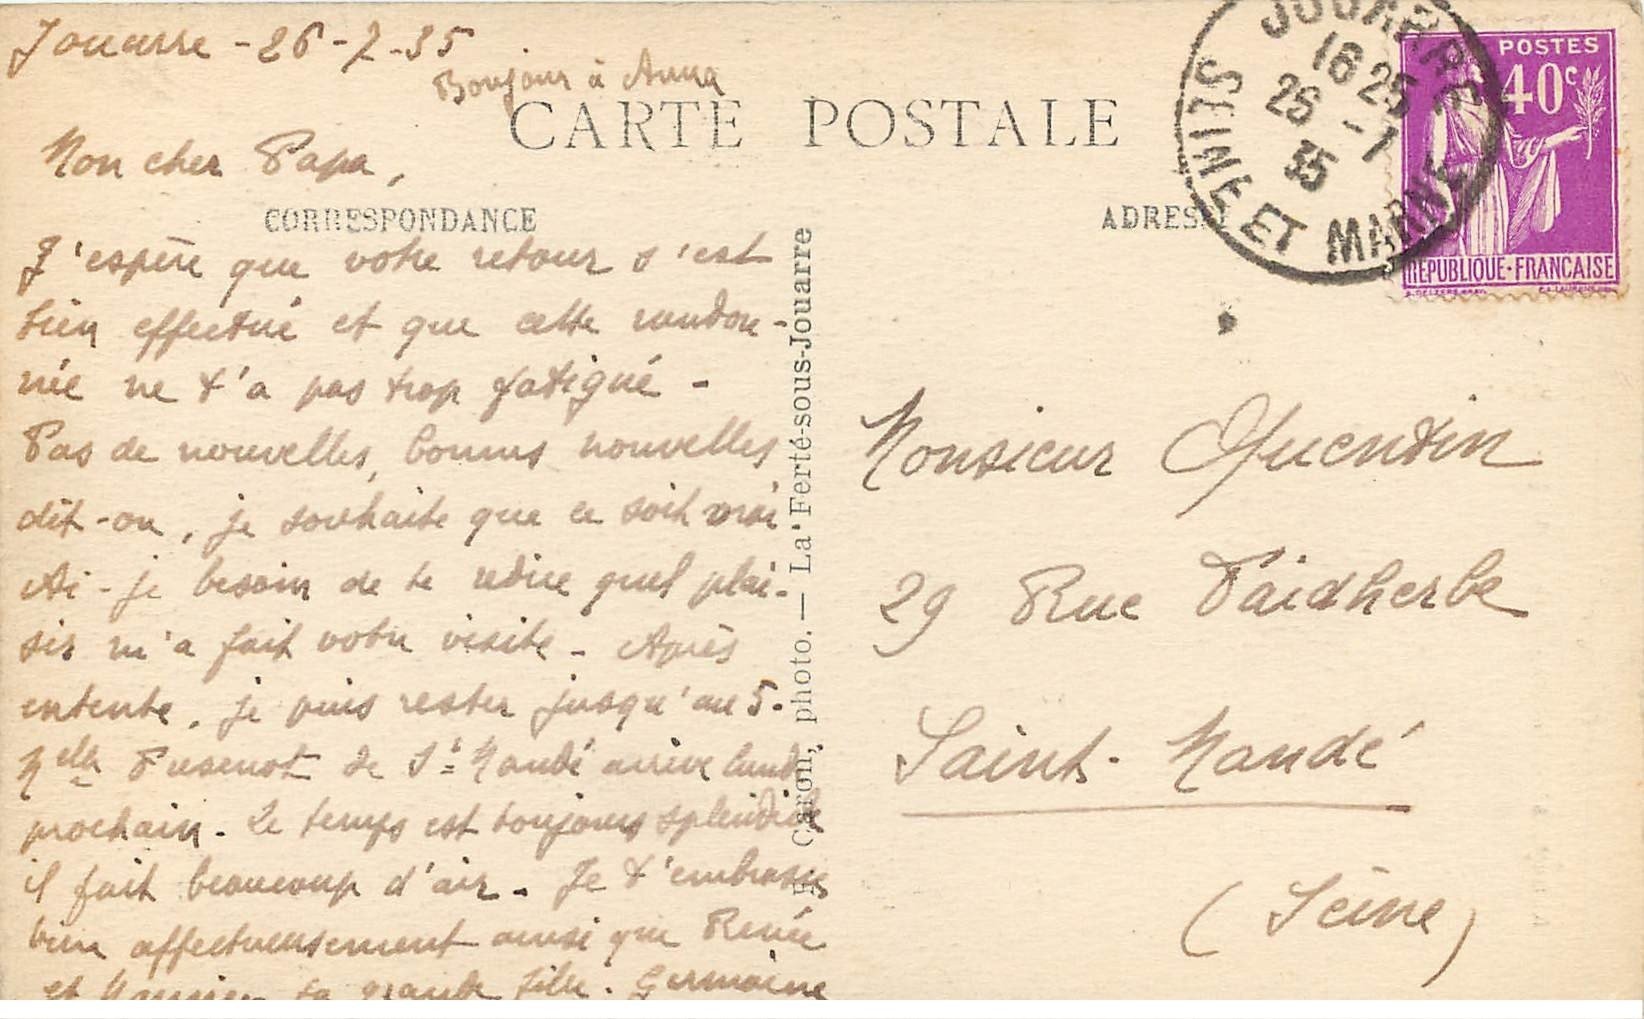 Jouarre - 26-7-35
Bonjour à Anna
CARTE POSTALE
Mon cher Papa,
CORRESPONDANCE
J'espère que votre retour s'est
bien effectué et que cette randon-
née ne t'a pas trop fatigué -
Pas de nouvelles, bonnes nouvelles
dit-on, je souhaite que ce soit vrai
Ai-je besoin de te redire quel plai-
sir m'a fait votre visite - Après
entente, je puis rester jusqu'au 5.
Mlle de St Mandé arrive lundi
prochain. Le temps est toujours splendide
il fait beaucoup d'air. Je t'embrasse
bien affectueusement ainsi que Renée
et ta grande fille. Germaine
Caron, photo. — La Ferté-sous-Jouarre
ADRESSE
JOUARRE
18 25
26 -7
35
SEINE ET MARNE
POSTES
40c
REPUBLIQUE·FRANCAISE
Monsieur Quentin
29 Rue Faidherbe
Saint-Mandé
(Seine)